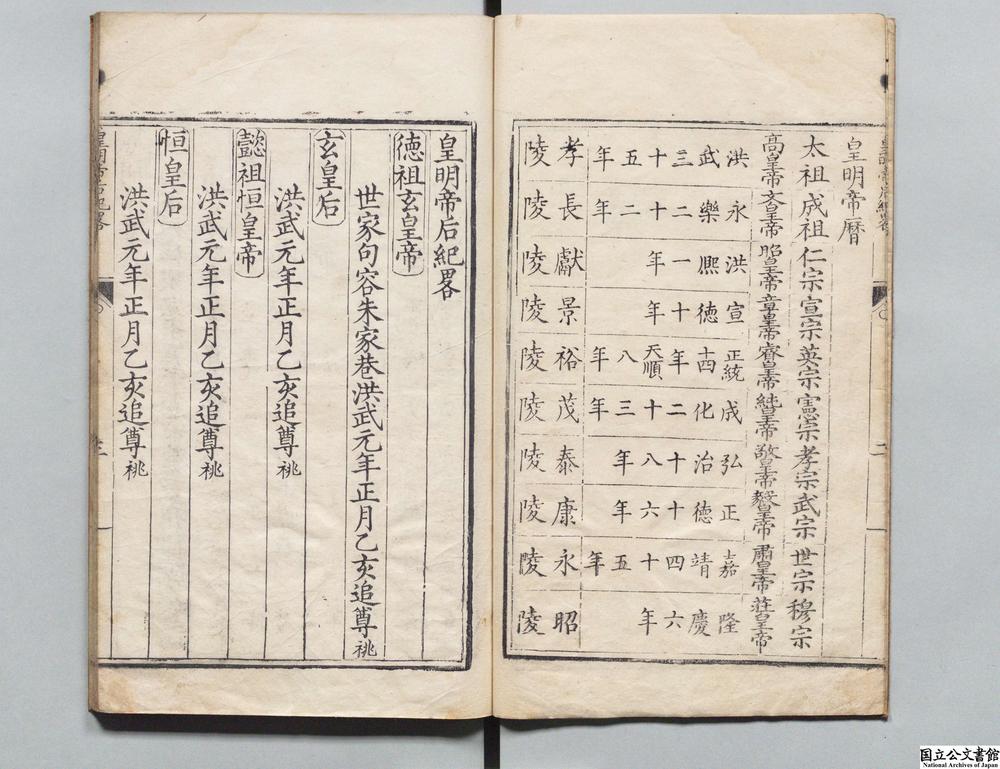 皇明帝曆
太祖成祖仁宗宣宗英宗憲宗孝宗武宗世宗穆宗
高皇帝文皇帝昭皇帝章皇帝睿皇帝純皇帝敬皇帝毅皇帝肅皇帝莊皇帝
洪武三十五年
永樂二十二年
洪熙一年
宣德十年
正統十四年天順八年
成化二十三年
弘治十八年
正德十六年
嘉靖四十五年
隆慶六年
孝陵
長陵
獻陵
景陵
裕陵
茂陵
泰陵
康陵
永陵
昭陵
皇明帝后紀畧
德祖玄皇帝
世家句容朱家巷洪武元年正月乙亥追尊祧
玄皇后
洪武元年正月乙亥追尊祧
懿祖恒皇帝
洪武元年正月乙亥追尊祧
恒皇后
洪武元年正月乙亥追尊祧
皇明帝后紀畧
国立公文書館
National Archives of Japan